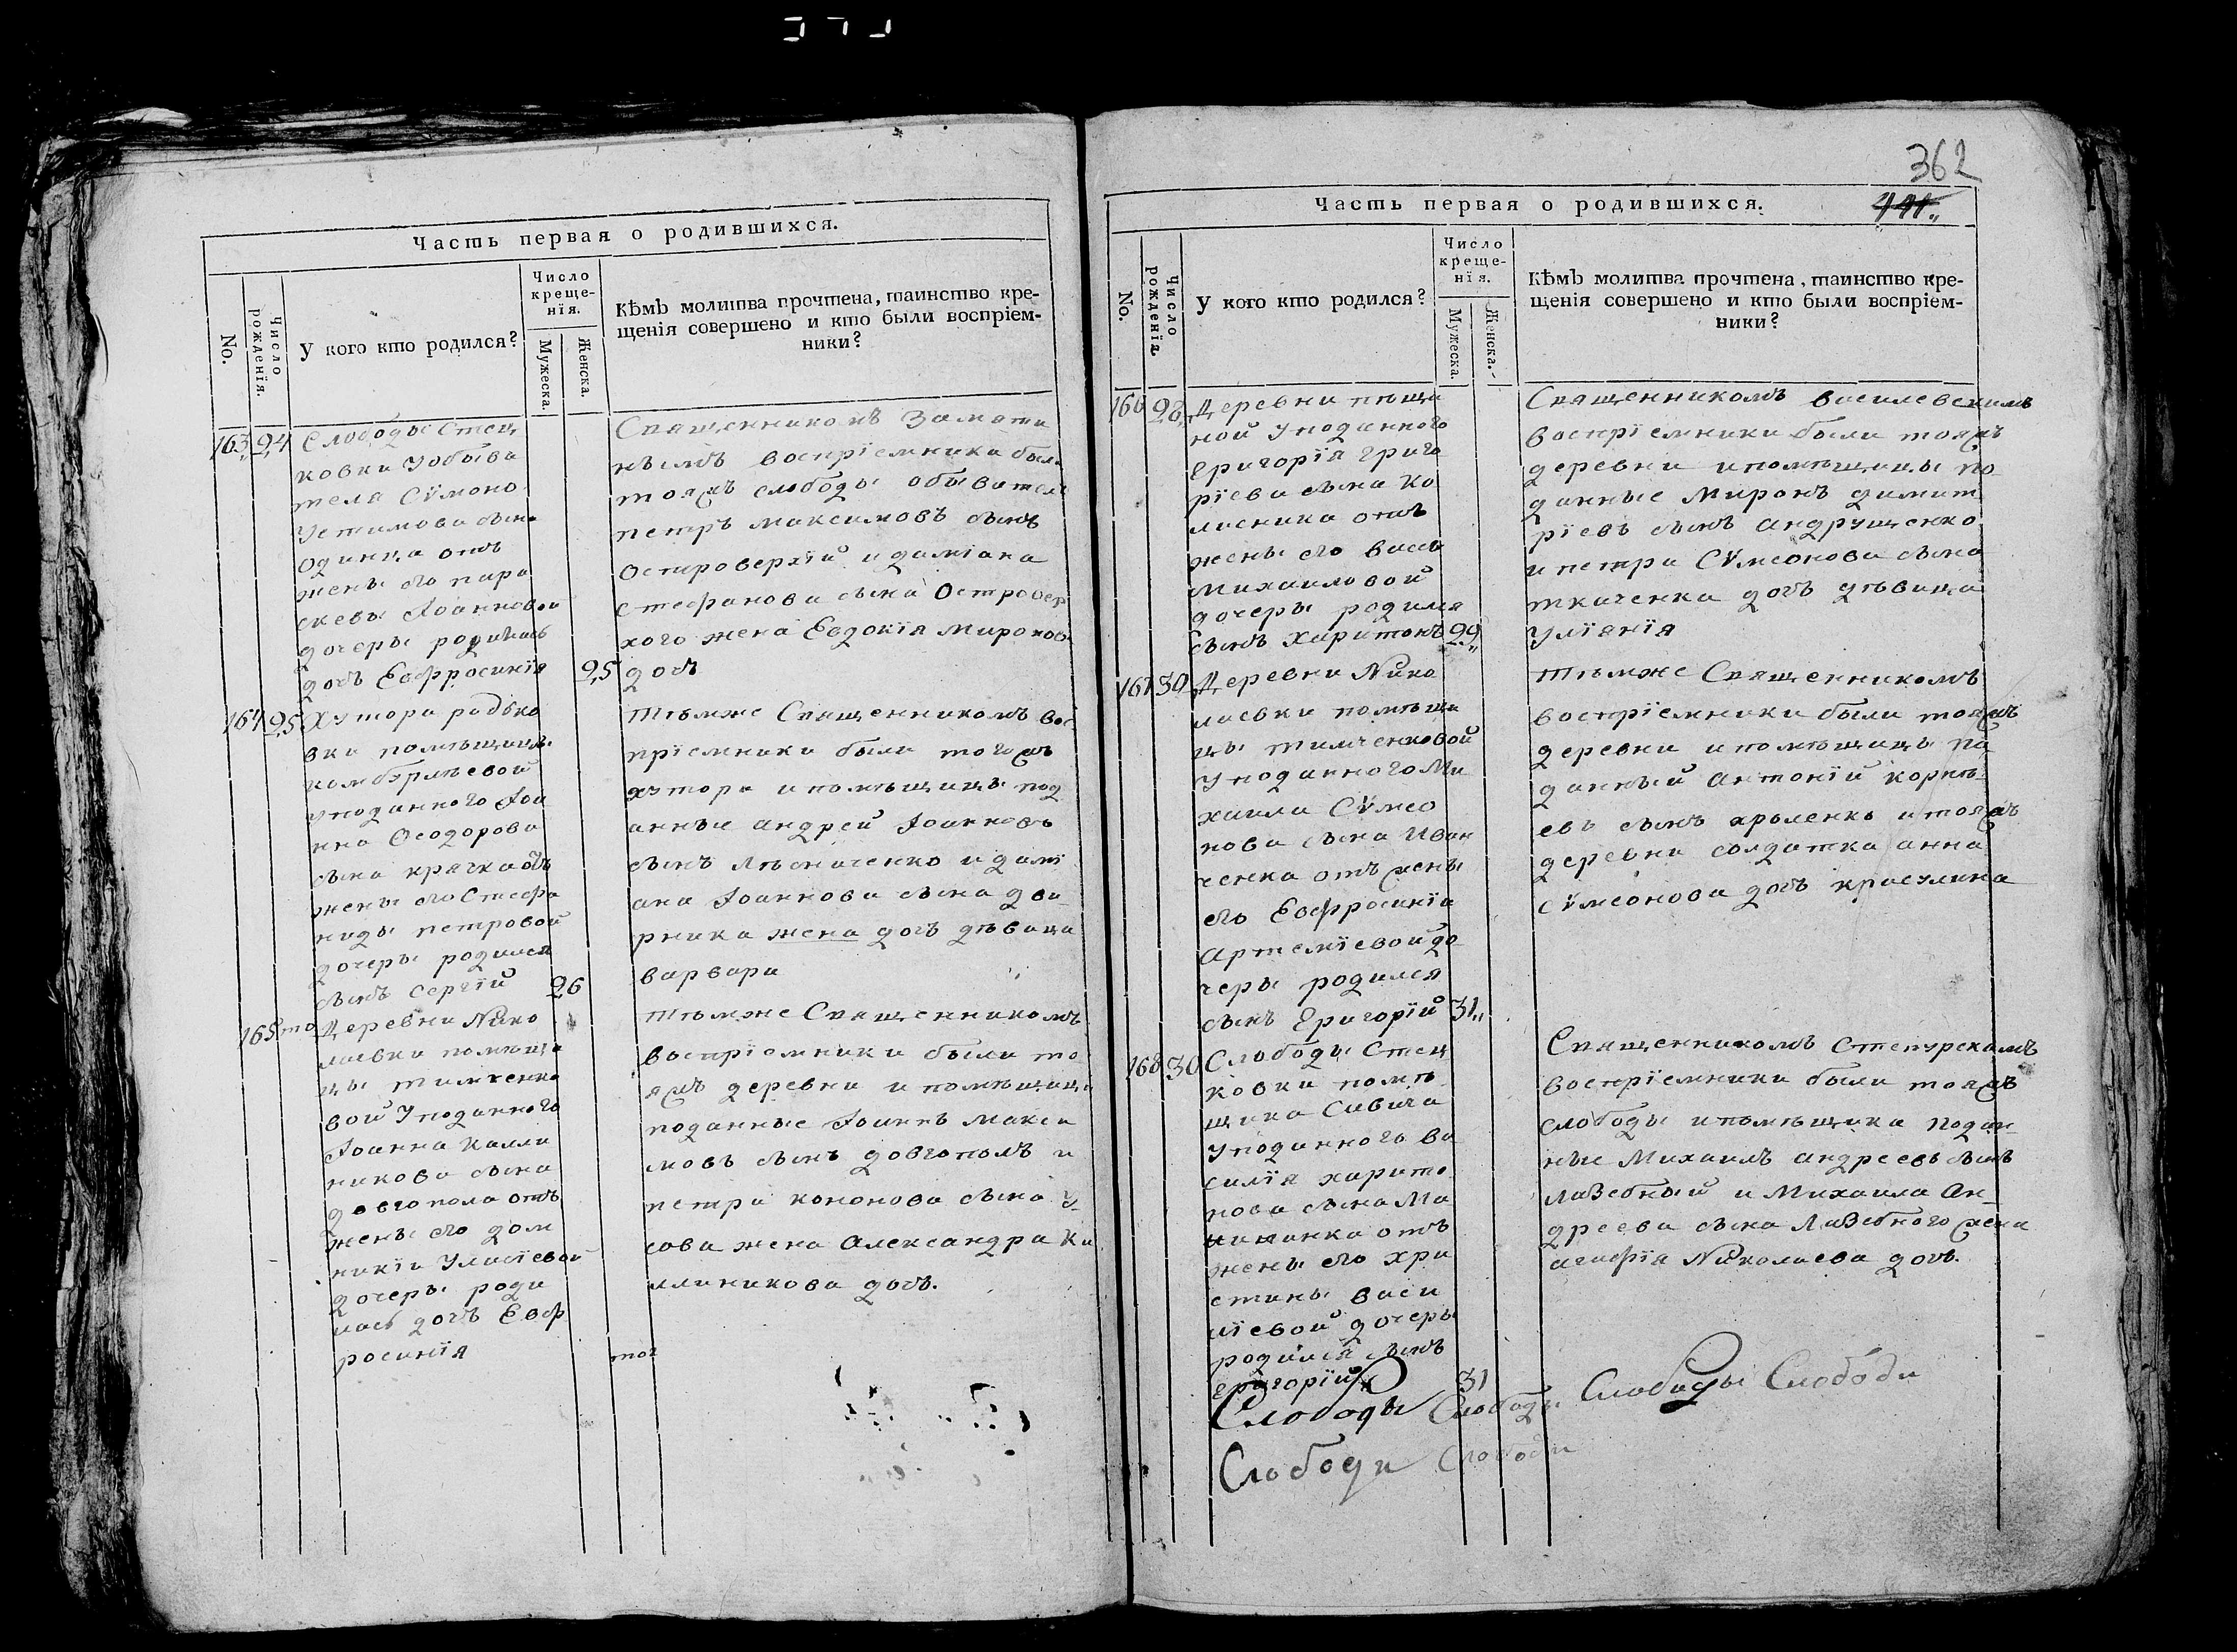 362
Часть первая о родившихся.
No.
Число рожденїя.
У кого кто родился?
Число
креще-
нїя.
Мужеска.
Женска.
Кѣмъ молитва прочтена, таинство кре-
щенія совершено и кто были воспріем-
ники?
163 24 Слободы Стец
ковки Уобыва
теля Сѵмона
Устимова сына
Одинца отъ
жены его пара
скевы Іоанновой
дочеры родилась
дочъ Евфросинїя 25
Священникомъ
воспрїемники были
тояжъ слободы обыватель
петръ максимовъ сынъ
Островерхїй и дамїана
стефанова сына Островер
хого жена Евдокїя миронова
дочъ
164 25 Хутора радько
вки помѣщицы
камбурлѣевой
уподанного Іоа
нна Ѳеодорова
сына крячка отъ
жены его Стефа
ниды петровой
дочеры родился
сынъ сергїй 26
тѣмже Священникомъ вос
прїемники были тогожъ
хутора и помѣщицы под
анные андрей Іоанновъ
сынъ лѣсниченко и дамї
ана Іоаннова сына дво
рника жена дочъ дѣвица
варвара
165 то Деревни Нико
лаевки помѣщи
цы тимченко
вой Уподанного
Іоанна Калли
никова сына
довгопола отъ
жены его дом
никїи Уласїевой
дочеры роди
лась дочъ Евф
росинїя тог
тѣмже Священникомъ
воспрїемники были то
яжъ деревни и помѣщицы
поданные Іоаннъ макси
мовъ сынъ довгополъ и
петра кононова сына У
сова жена Александра Ка
линикова дочъ.
Часть первая о родившихся.
No.
Число рожденїя
У кого кто родился?
Число
креще-
нїя.
Мужеска.
Женска.
Кѣмъ молитва прочтена, таинство кре-
щенія совершено и кто были воспріем-
ники?
166 28 Деревни пѣща
ной Уподанного
Григорїя григо
рїева сына Ко
лисника отъ
жены его васы
михаиловой
дочеры родился
сынъ Харитонъ 29
Священникомъ василевскимъ
воспрїемники были тояжъ
деревни и помѣщицы по
данные Миронъ димит
рїевъ сынъ андрущенко
и петра Сѵмеонова сына
ткаченка дочъ дѣвица
Улїянїя
167 30 Деревни Нико
лаевки помѣщи
цы тимченковой
Уподанного Ми
хаила Сѵмео
нова сына Иван
ченка отъ жены
его Евфросинїи
артемїевой до
черы родился
сынъ Григорїй 31
тѣмже Священникомъ
воспрїемники были тояжъ
деревни и помѣщицы по
данный Антонїй корнѣ
евъ сынъ хроленко и тояжъ
деревни солдатка анна
сѵмеонова дочъ красулина
168 30 Слободы Стец
ковки помѣ
щика Савича
Уподанного ва
силїя харито
нова сына Ма
отъ
жены его Хри
стины васи
лїевой дочеры
родился сынъ
григорїй 31
Священникомъ Степурскимъ
воспрїемники были тояжъ
слободы и помѣщика подан
ные Михаилъ андреевъ сынъ
лазебный и Михаила Ан
дреева сына Лазебного жена
агафїя Николаева дочъ.
Слободы Слободы Слободы Слободи
Слободи Слободи